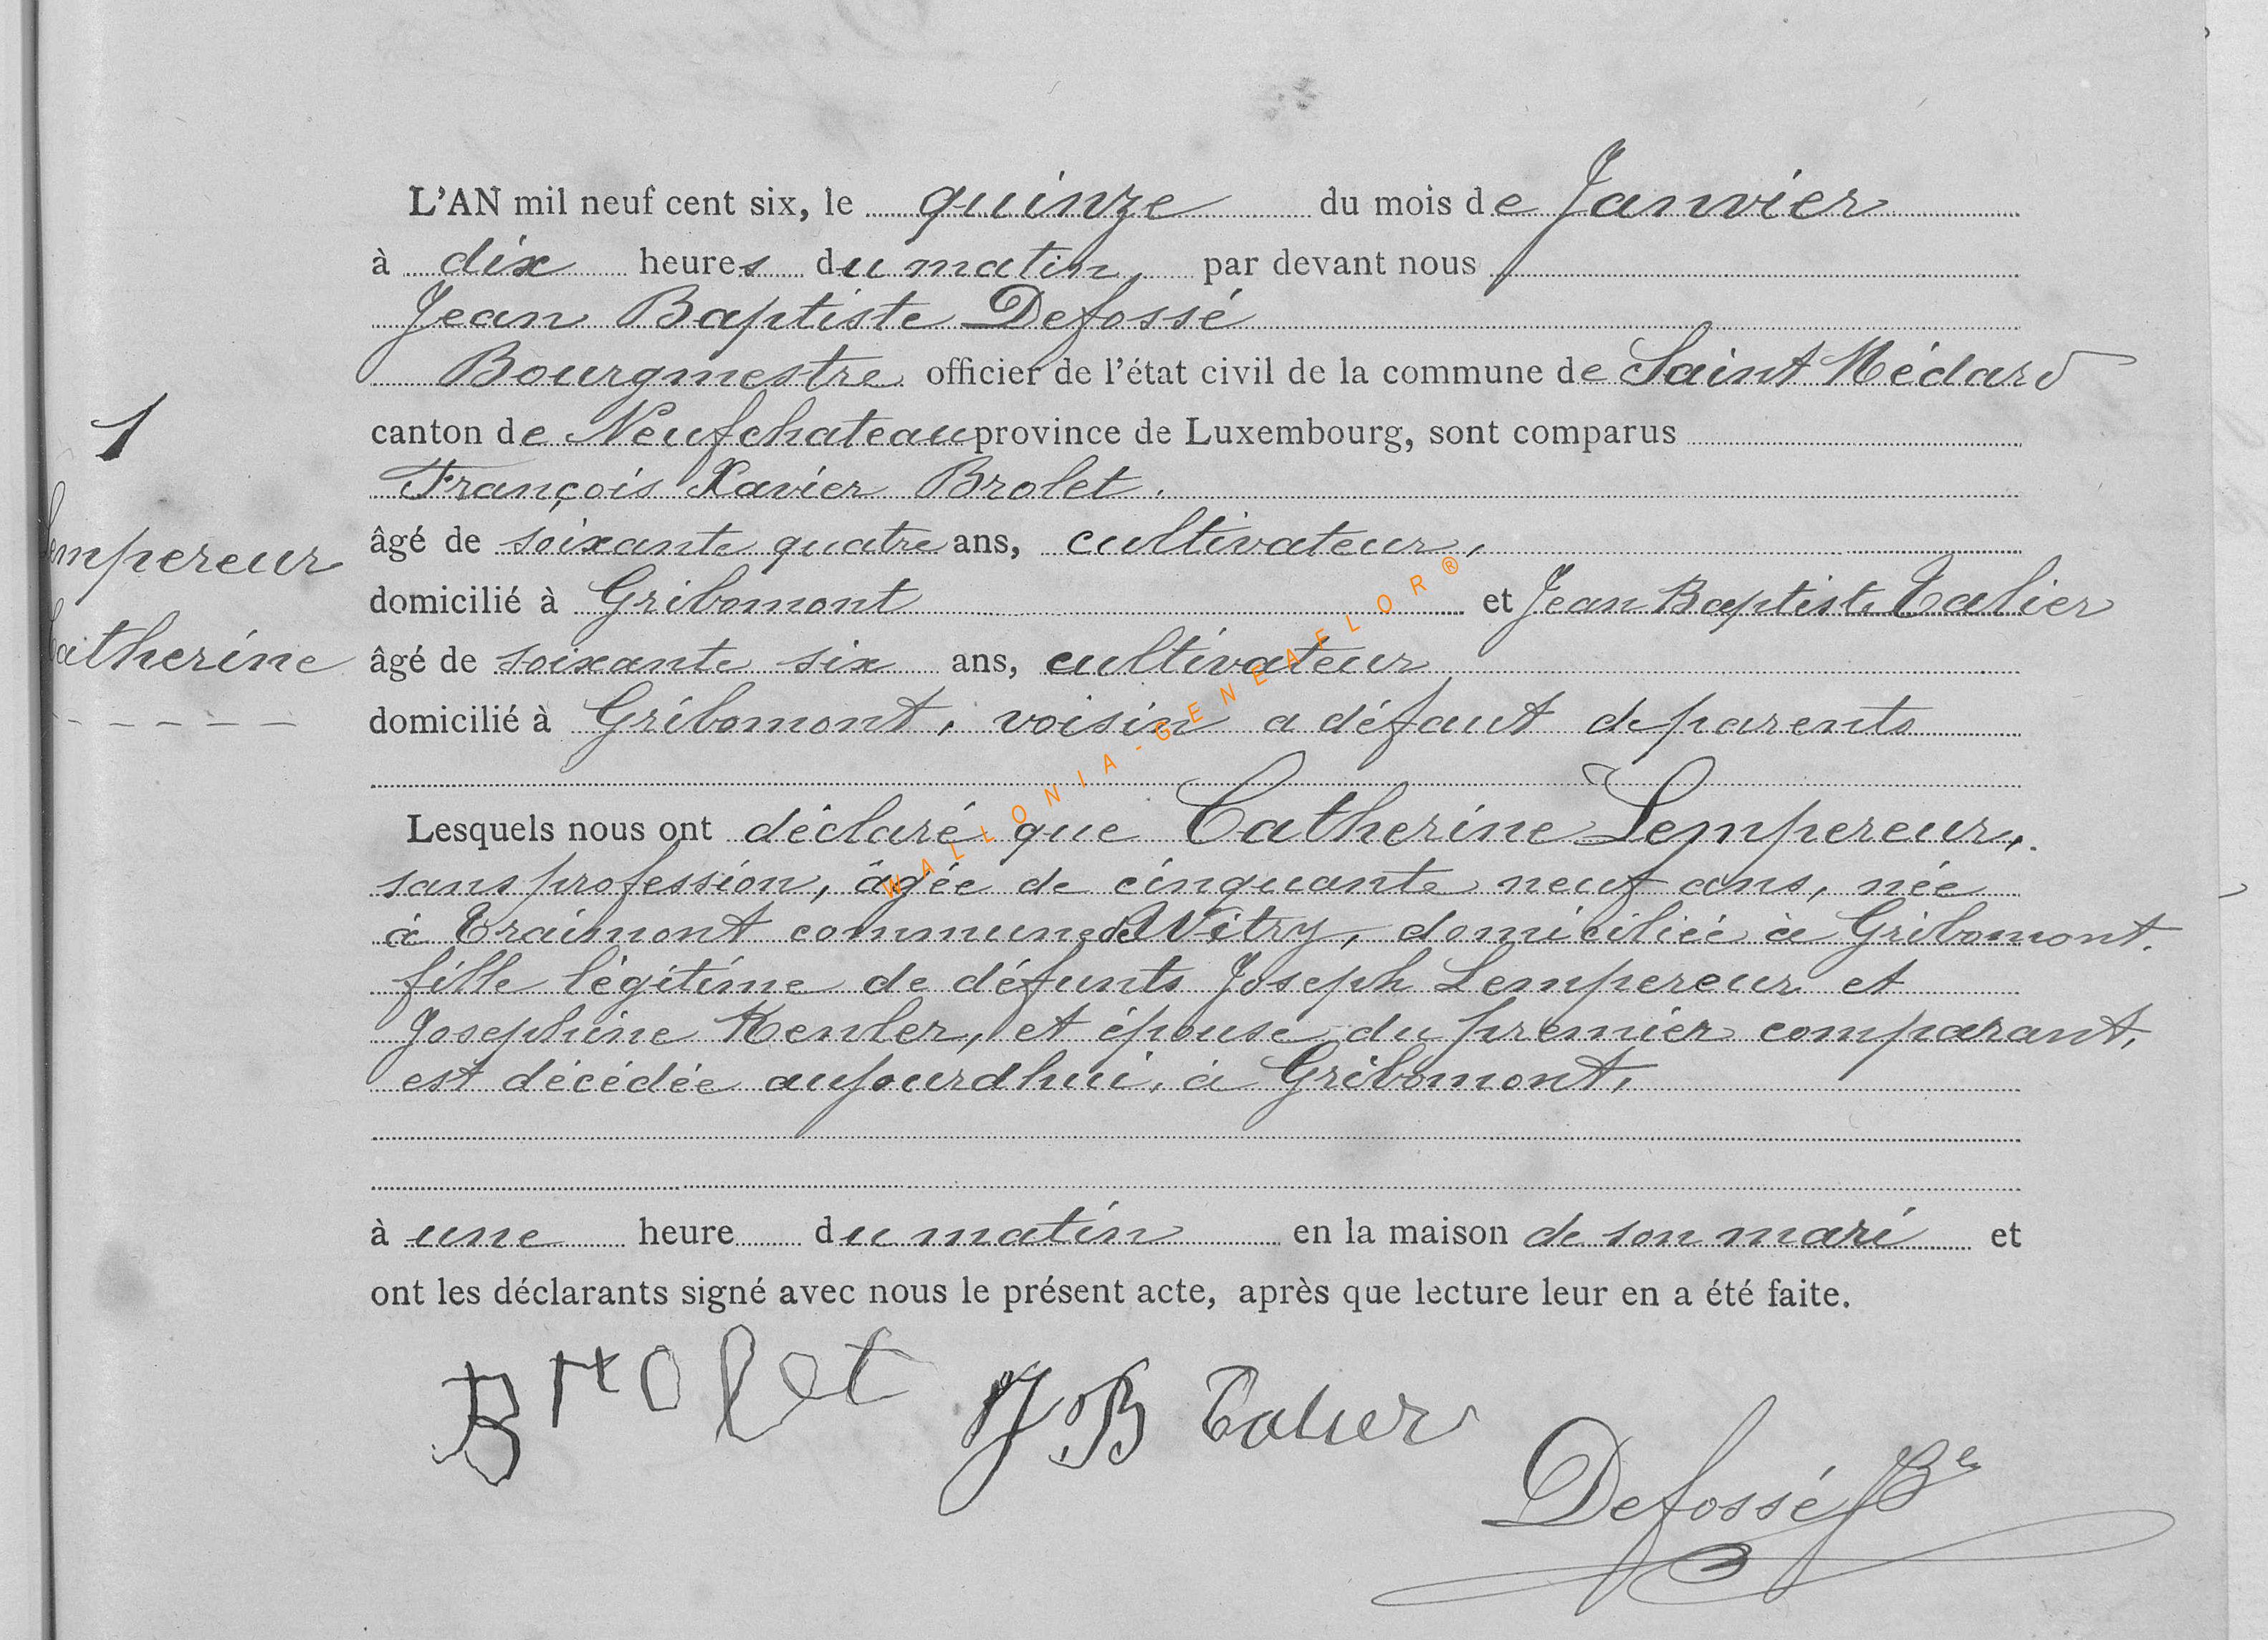 L'AN mil neuf cent six, le quinze du mois de Janvier
à dix heures du matin, par devant nous
Jean Baptiste Defossé
Bourgmestre officier de l'état civil de la commune de Saint Médard
1
canton de Neufchateau province de Luxembourg, sont comparus
François Xavier Brolet.
Lempereur
âgé de soixante quatre ans, cultivateur,
domicilié à Gribomont et Jean Baptiste Talier
Catherine
âgé de soixante six ans, cultivateur
domicilié à Gribomont, voisin a défaut de parents
WALLONIA-GENEAFLOR®
Lesquels nous ont déclaré que Catherine Lempereur,
sans profession, âgée de cinquante neuf ans, née
à Traimont commune de Witry, domiciliée à Gribomont.
fille légitime de défunts Joseph Lempereur et
Josephine Kenler, et épouse du premier comparant,
est décédée aujourdhui, à Gribomont,
à une heure du matin en la maison de son mari et
ont les déclarants signé avec nous le présent acte, après que lecture leur en a été faite.
Brolet JB Talier
Defossé